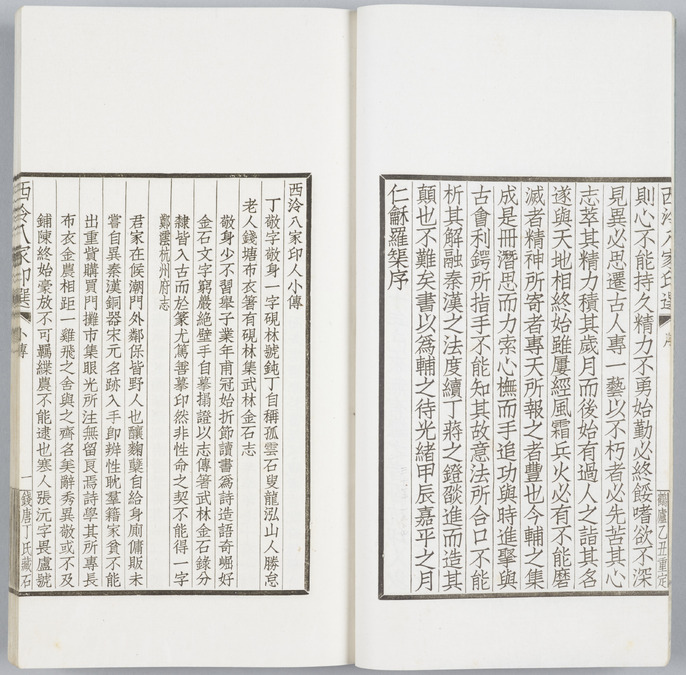 西泠八家印選 序 廬乙丑重定
則心不能持久精力不勇始勤必終餒嗜欲不深
見異必思遷古人專一藝以不朽者必先苦其心
志萃其精力積其歲月而後始有過人之詣其名
遂與天地相終始雖屢經風霜兵火必有不能磨
滅者精神所寄者專天所報之者豐也今輔之集
成是冊潛思而力索心憮而手追功與時進摹與
古會利鍔所指手不能知其故意法所合口不能
析其解融秦漢之法度續丁蔣之鐙燄進而造其
顛也不難矣書以爲輔之待光緒甲辰嘉平之月
仁龢羅榘序
西泠八家印人小傳
丁敬字敬身一字硯林號鈍丁自稱孤雲石叟龍泓山人勝怠
老人錢塘布衣箸有硯林集武林金石志
敬身少不習舉子業年甫冠始折節讀書爲詩造語奇崛好
金石文字窮巖絕壁手自摹搨證以志傳箸武林金石錄分
隸皆入古而於篆尤篤善摹印然非性命之契不能得一字
鄭澐杭州府志
君家在候潮門外鄰保皆野人也釀麴糵自給身廁傭販未
嘗自異秦漢銅器宋元名跡入手卽辨性耽羣籍家貧不能
出重貲購買門攤市集眼光所注無留焉詩學其所專長
布衣金農相距一雞飛之舍與之齊名美辭秀異敬或不及
鋪陳終始豪放不可羈緤農不能逮也寒人張沅字畏盧號
西泠八家印選 小傳 一 錢唐丁氏藏石